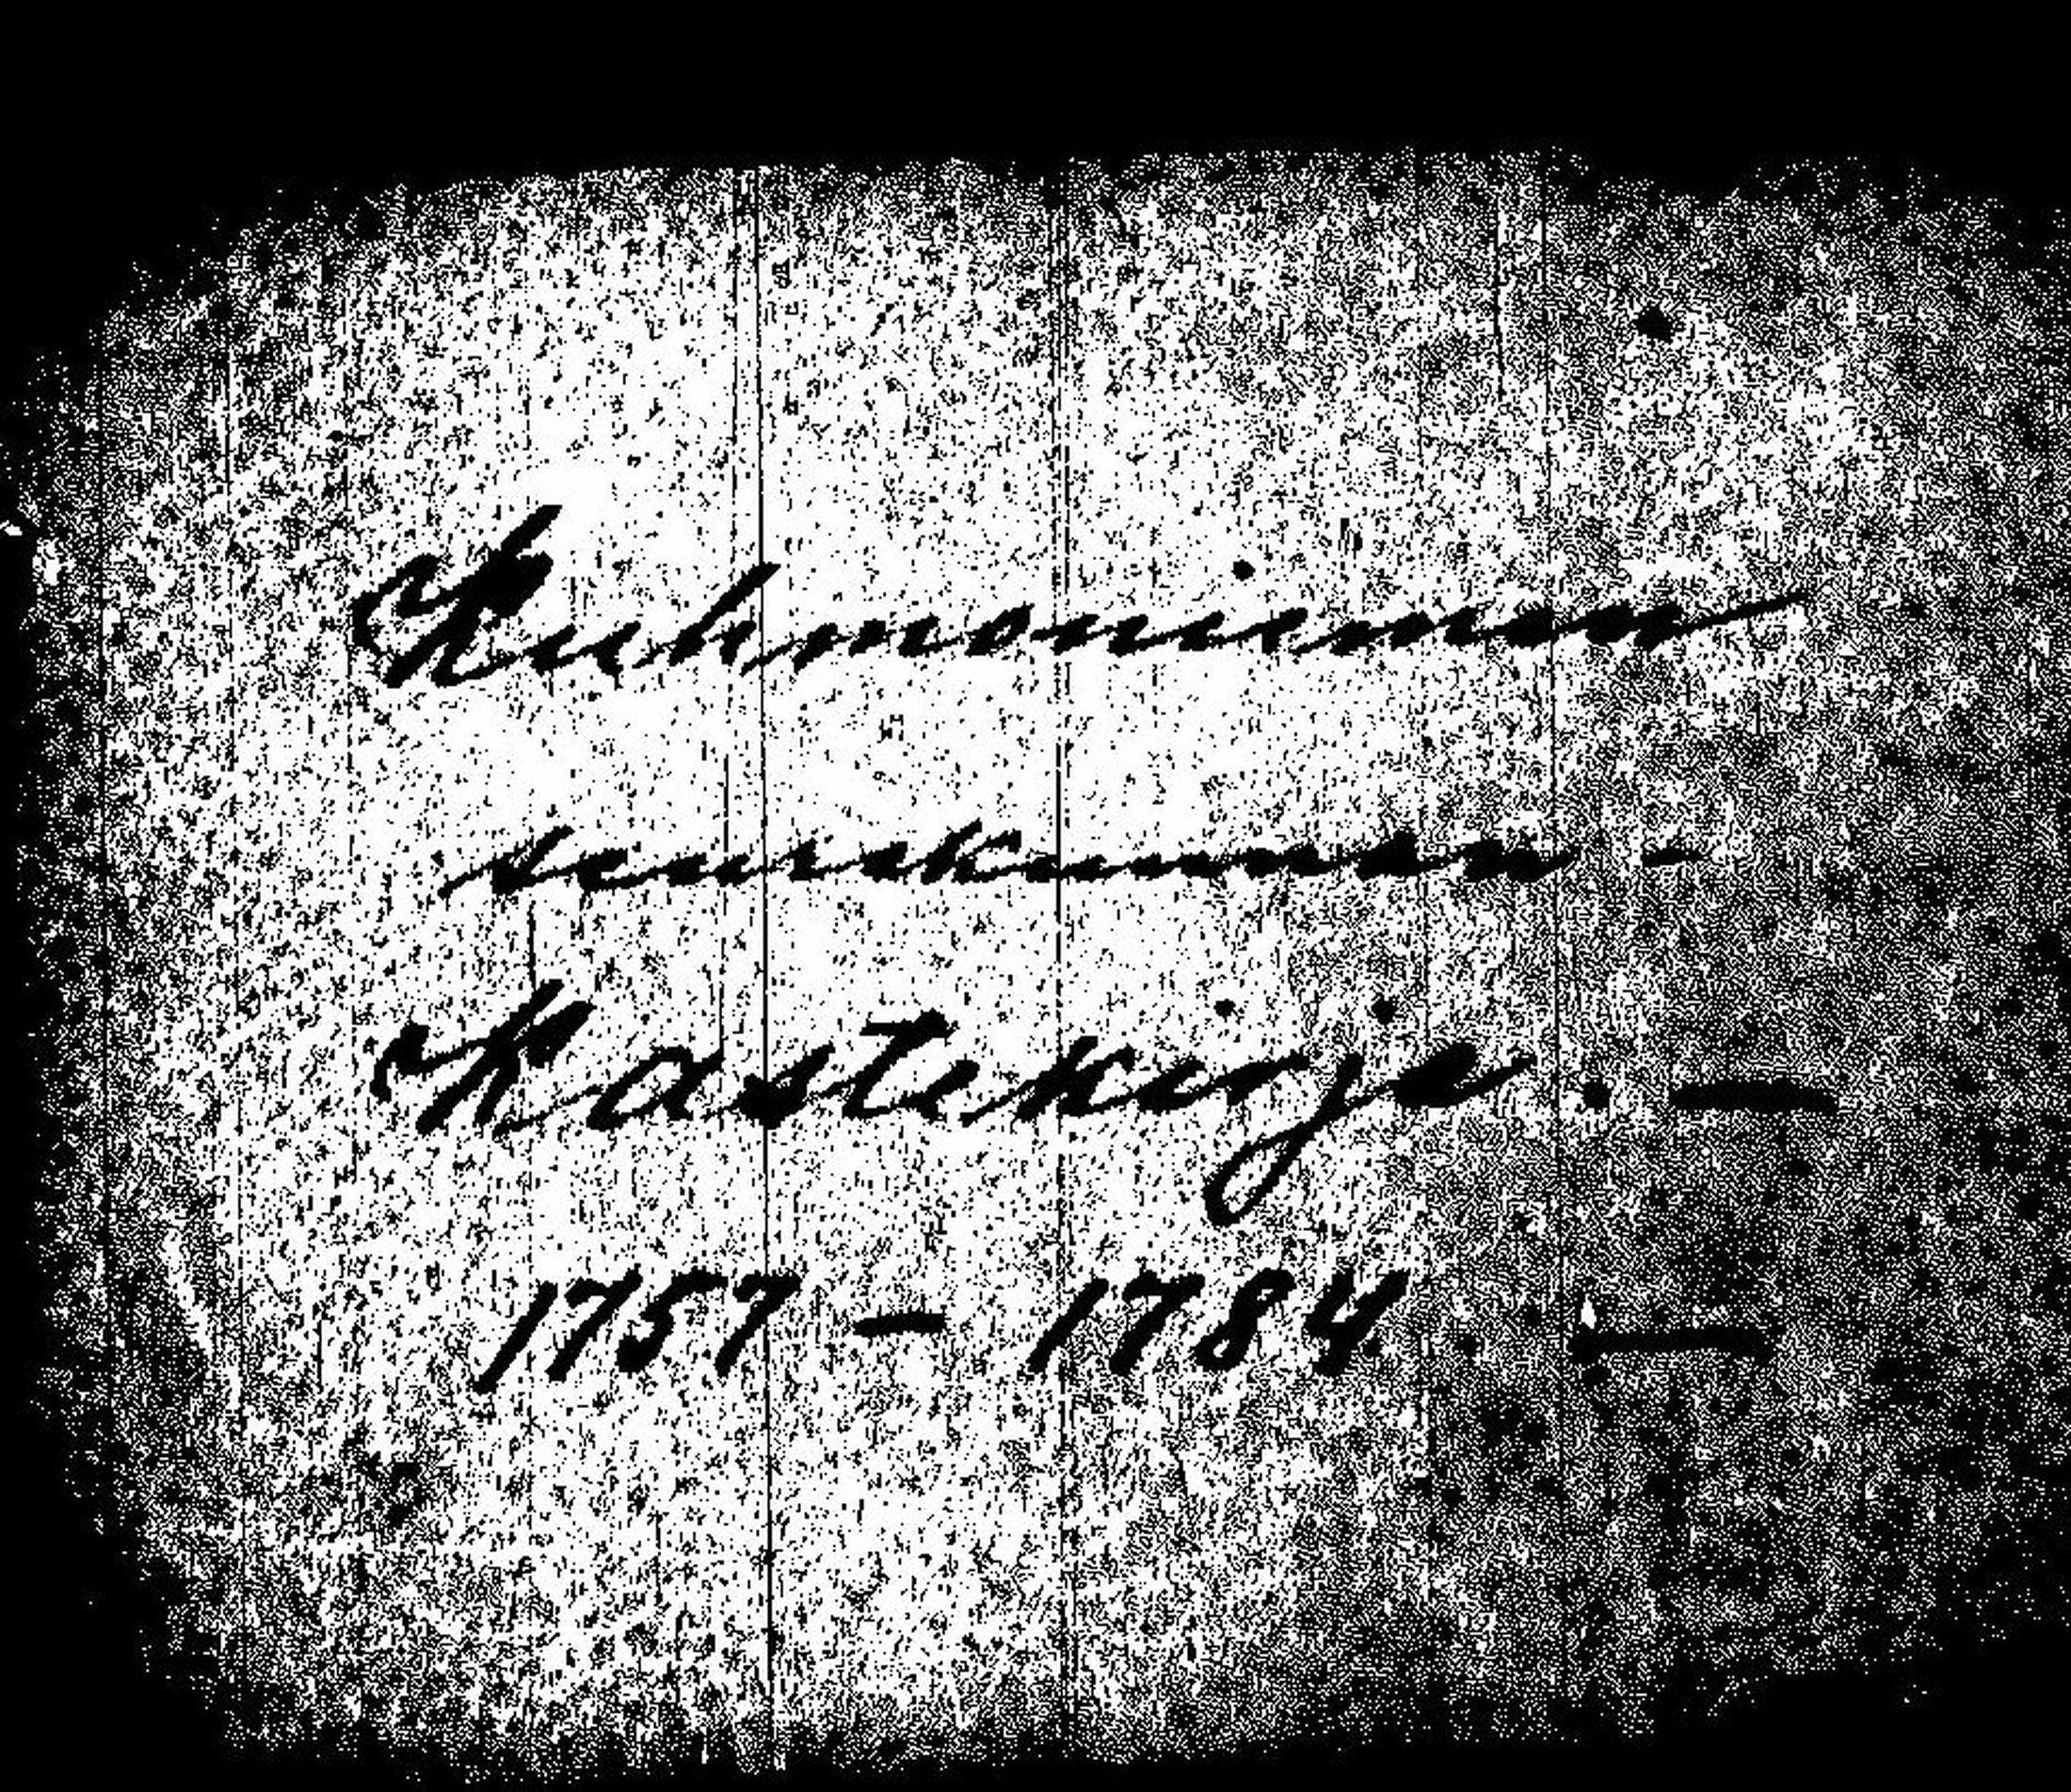 Kuhmoniemen
seurakunnan -
Kastekirja. —
1757 — 1784. —